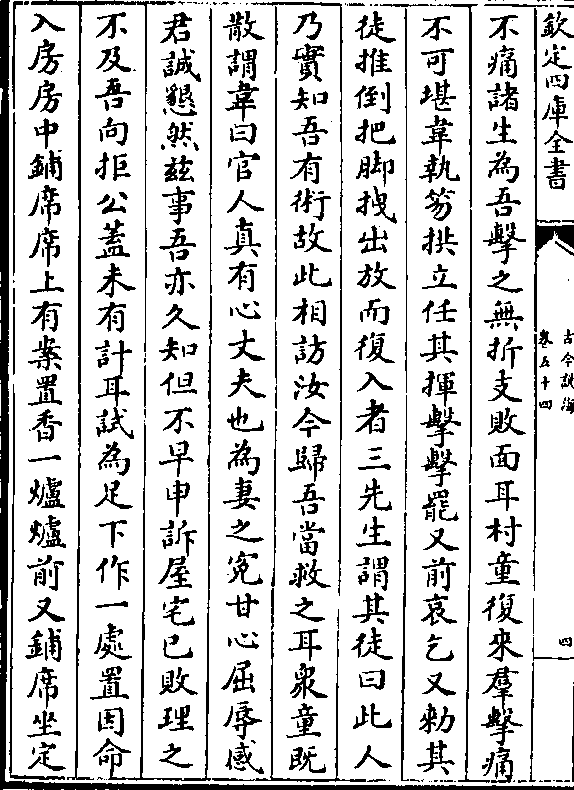 欽定四庫全書
古今説海
卷五十四
四
不痛諸生為吾擊之無折支敗面耳村童復来羣擊痛
不可堪韋執笏拱立任其揮擊擊罷又前哀乞又勅其
徒推倒把脚拽出放而復入者三先生謂其徒曰此人
乃實知吾有術故此相訪汝今歸吾當救之耳衆童既
散謂韋曰官人真有心丈夫也為妻之寃甘心屈辱感
君誠懇然兹事吾亦久知但不早申訴屋宅已敗理之
不及吾向拒公蓋未有計耳試為足下作一處置因命
入房房中鋪席席上有案置香一爐爐前又鋪席坐定